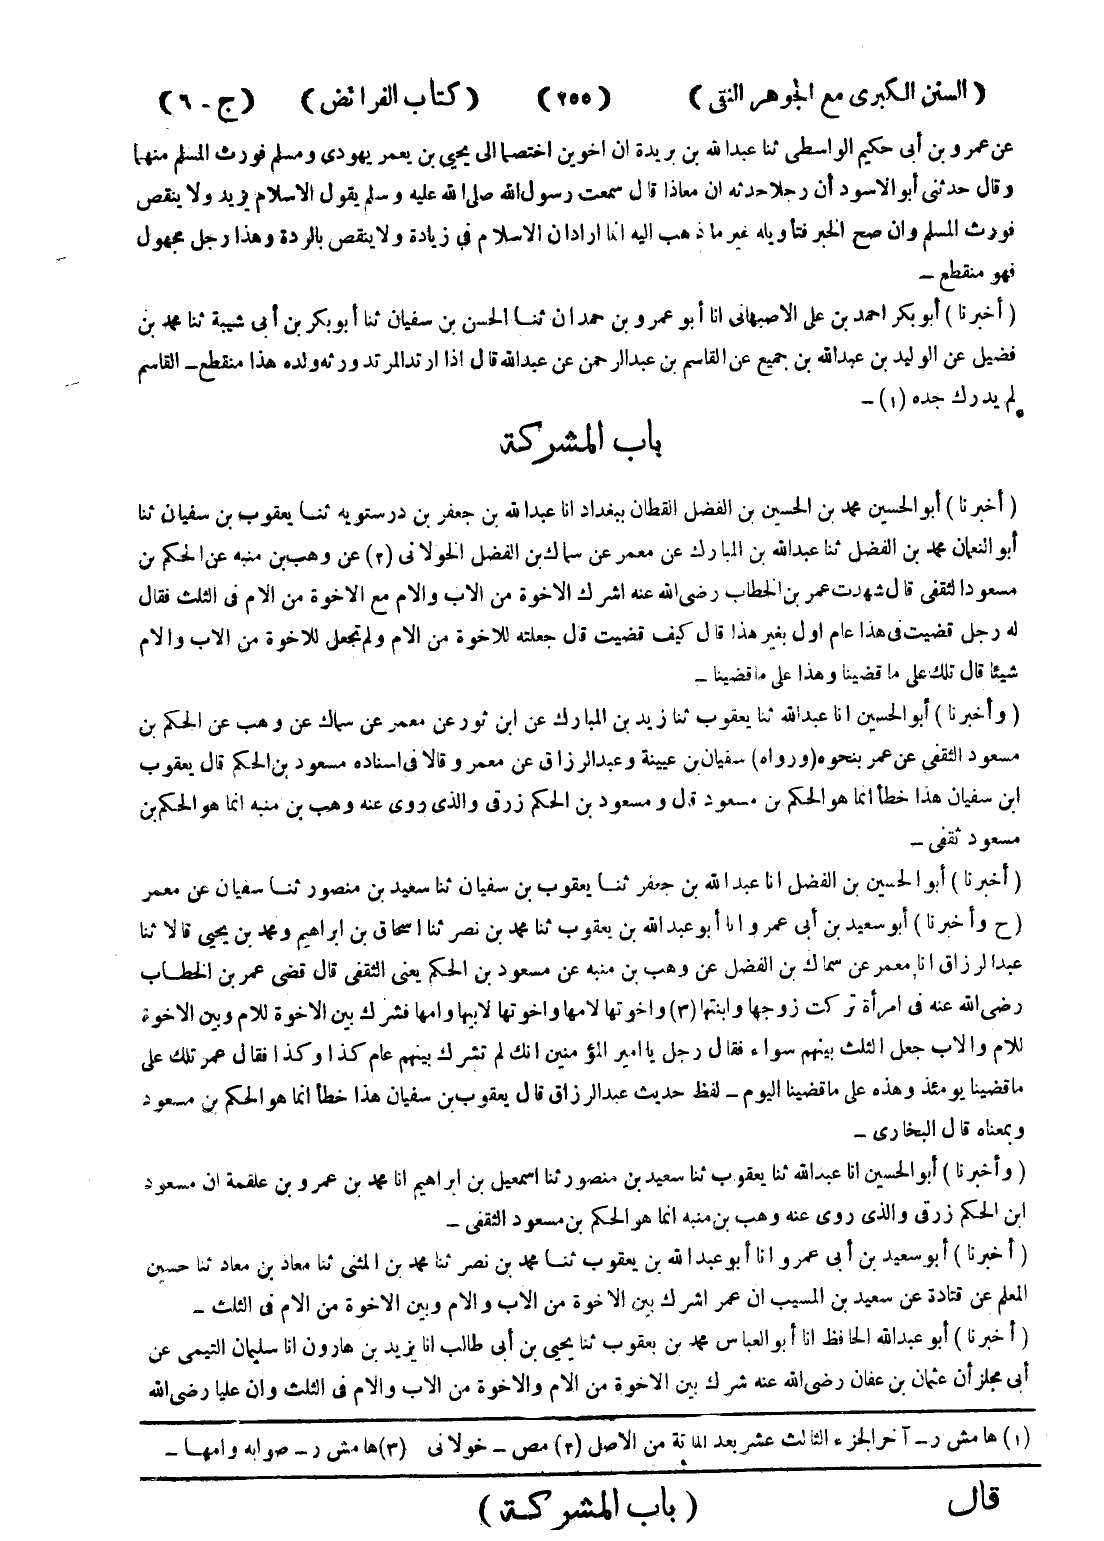 ( السنن الكبرى مع الجوهر النقى ) (٢٥٥) ( كتاب الفرائض ) ( ج - ٦ )
عن عمرو بن أبى حكيم الواسطى ثنا عبدالله بن بريدة ان اخوين اختصما الى يحيى بن يعمر يهودى ومسلم فورث المسلم منهما
وقال حدثنى أبو الاسود أن رجلا حدثه ان معاذا قال سمعت رسول الله صلى الله عليه وسلم يقول الاسلام يزيد ولا ينقص
فورث المسلم وان صح الخبر فتأويله غير ما ذهب اليه انما اراد ان الاسلام في زيادة ولا ينقص بالردة وهذا رجل مجهول
فهو منقطع –
( أخبرنا ) أبو بكر احمد بن على الاصبهانى انا أبو عمرو بن حمدان ثنا الحسن بن سفيان ثنا أبو بكر بن أبى شيبة ثنا محمد بن
فضيل عن الوليد بن عبدالله بن جميع عن القاسم بن عبدالرحمن عن عبدالله قال اذا ارتد المرتد ورثه ولده هذا منقطع – القاسم
لم يدرك جده (١) –
باب المشركة
( أخبرنا ) أبو الحسين محمد بن الحسين بن الفضل القطان ببغداد انا عبدالله بن جعفر بن درستويه ثنا يعقوب بن سفيان ثنا
أبو النعمان محمد بن الفضل ثنا عبدالله بن المبارك عن معمر عن سماك بن الفضل الخولانى (٢) عن وهب بن منبه عن الحكم بن
مسعود الثقفى قال شهدت عمر بن الخطاب رضى الله عنه اشرك الاخوة من الاب والام مع الاخوة من الام فى الثلث فقال
له رجل قضيت فى هذا عام اول بغير هذا قال كيف قضيت قال جعلته للاخوة من الام ولم تجعل للاخوة من الاب والام
شيئا قال تلك على ما قضينا وهذا على ما قضينا –
( وأخبرنا ) أبو الحسين انا عبدالله ثنا يعقوب ثنا زيد بن المبارك عن ابن ثور عن معمر عن سماك عن وهب عن الحكم بن
مسعود الثقفى عن عمر بنحوه (ورواه) سفيان بن عيينة وعبدالرزاق عن معمر وقالا فى اسناده مسعود بن الحكم قال يعقوب
ابن سفيان هذا خطأ انما هو الحكم بن مسعود قال ومسعود بن الحكم زرقى والذى روى عنه وهب بن منبه انما هو الحكم بن
مسعود ثقفى –
( أخبرنا ) أبو الحسين بن الفضل انا عبدالله بن جعفر ثنا يعقوب بن سفيان ثنا سعيد بن منصور ثنا سفيان عن معمر
( ح وأخبرنا ) أبو سعيد بن أبى عمرو انا أبو عبدالله بن يعقوب ثنا محمد بن نصر ثنا اسحاق بن ابراهيم ومحمد بن يحيى قالا ثنا
عبدالرزاق انا معمر عن سماك بن الفضل عن وهب بن منبه عن مسعود بن الحكم يعنى الثقفى قال قضى عمر بن الخطاب
رضى الله عنه فى امرأة تركت زوجها وابنتها (٣) واخوتها لامها واخوتها لابيها وامها فشرك بين الاخوة للام وبين الاخوة
للام والاب جعل الثلث بينهم سواء فقال رجل يا امير المؤمنين انك لم تشرك بينهم عام كذا وكذا فقال عمر تلك على
ما قضينا يومئذ وهذه على ما قضينا اليوم – لفظ حديث عبدالرزاق قال يعقوب بن سفيان هذا خطأ انما هو الحكم بن مسعود
وبمعناه قال البخارى –
( وأخبرنا ) أبو الحسين انا عبدالله ثنا يعقوب ثنا سعيد بن منصور ثنا اسمعيل بن ابراهيم انا محمد بن عمرو بن علقمة ان مسعود
ابن الحكم زرقى والذى روى عنه وهب بن منبه انما هو الحكم بن مسعود الثقفى –
( أخبرنا ) أبو سعيد بن أبى عمرو انا أبو عبدالله بن يعقوب ثنا محمد بن نصر ثنا محمد بن المثنى ثنا معاذ بن معاذ ثنا حسين
المعلم عن قتادة عن سعيد بن المسيب ان عمر اشرك بين الاخوة من الاب والام وبين الاخوة من الام فى الثلث –
( أخبرنا ) أبو عبدالله الحافظ انا أبو العباس محمد بن يعقوب ثنا يحيى بن أبى طالب انا يزيد بن هارون انا سليمان التيمى عن
أبى مجلز أن عثمان بن عفان رضى الله عنه شرك بين الاخوة من الام والاخوة من الاب والام فى الثلث وان عليا رضى الله
(١) هامش ر – آخر الجزء الثالث عشر بعد المائة من الاصل (٢) مص – خولانى (٣) هامش ر – صوابه وامها –
قال ( باب المشركة )